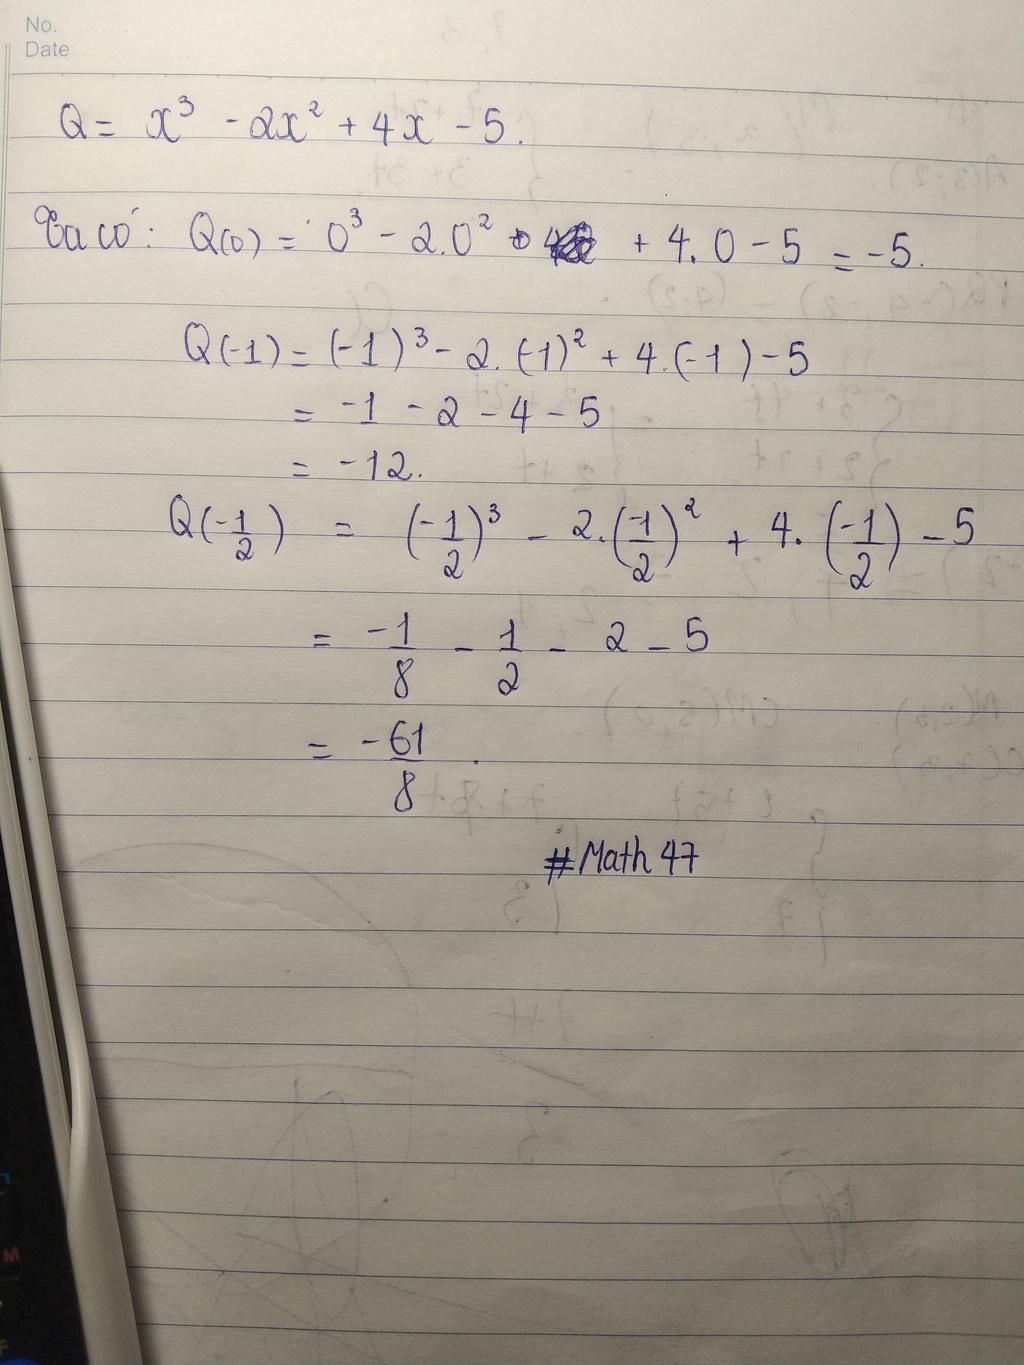 No.
Date
Q = x³ - 2x² + 4x - 5.
Ta có: Q(0) = 0³ - 2.0² + 4.0 - 5 = -5.
Q(-1) = (-1)³ - 2.(-1)² + 4.(-1) - 5
= -1 - 2 - 4 - 5
= -12.
Q(-1/2) = (-1/2)³ - 2.(-1/2)² + 4.(-1/2) - 5
= -1/8 - 1/2 - 2 - 5
= -61/8.
#Math 47